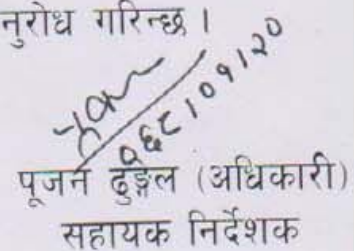 नुरोध गरिन्छ ।
०६८।०१।२०
पूजन ढुङ्गेल (अधिकारी)
सहायक निर्देशक